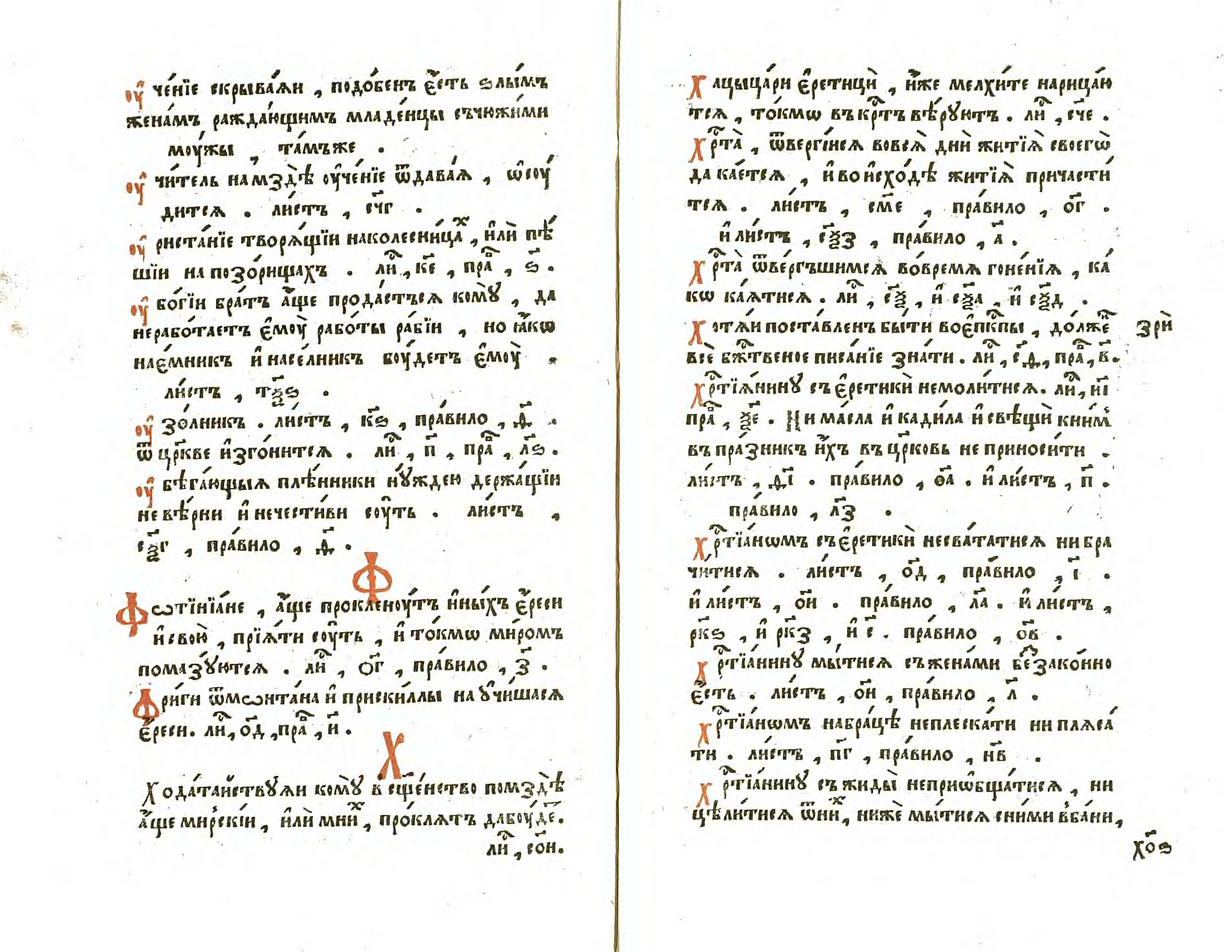 Оу҆че́нїе скрыва́ѧи , подо́бенъ є҆́сть ѕлы́мъ
жена́мъ ражда́ющимъ младе́нцы съчюжи́ми
моу́жы , та́мъже .
Оу҆чи́тель намздѣ̀ оу҆че́нїе ѿдава́ѧ , ѡ҆соу́
дитсѧ . ли́стъ , сч҃г .
Оу҆риста́нїе творѧ́щїи наколесница́ⷯ , и҆лѝ пѣ́
шїи на позо́рищахъ . лиⷭ , ке҃ , праⷡ , ѕ҃ .
Оу҆бо́гїи бра́тъ а҆́ще прода́стъсѧ комꙋ̀ , да
нерабо́таетъ є҆моу̀ рабо́ты ра́бїи , но ꙗ҆́кѡ
нає́мникъ и҆ насе́лникъ боу́детъ є҆моу̀ .
ли́стъ , тѯ҃ѕ .
Оу҆зо́лникъ . ли́стъ , кѕ҃ , пра́вило , д҃ .
ѿ цр҃кве и҆згони́тсѧ . лиⷭ , п҃ , праⷡ , лѕ҃ .
Оу҆бѣга́ющыѧ плѣ́нники нꙋ́ждею держа́щїи
невѣ́рни и҆ нечести́ви соу́ть . ли́стъ ,
сѯ҃г , пра́вило , д҃ .
Ф
Фѡтїнїа́не , а҆́ще проклену́тъ и҆ны́хъ є҆́реси
и҆ свою̀ , прїѧ́ти соу́ть , и҆ то́кмѡ мѵ́ромъ
помазꙋ́ютсѧ . лиⷭ , ѻ҃г , пра́вило , з҃ .
Фри́ги ѿмѡнта́на и҆ приски́ллы наꙋчи́шасѧ
є҆́реси . лиⷭ , ѻ҃д , праⷡ , и҃ .
Х
Хода́таиствꙋѧи комꙋ̀ в сщ҃е́нство помздѣ̀
а҆́ще ми́рскїи , и҆лѝ мниⷯ , про́клѧтъ дабоу́де .
лиⷭ , со҃и .
Хацыца́ри є҆ретицѝ , и҆́же мелхи́те нарица́ю
тсѧ , то́кмѡ въ крⷭ҇тъ вѣ́рꙋютъ . лиⷭ , сч҃е .
Хрⷭ҇та̀ , ѿве́ргїисѧ вовсѧ̀ дни̑ житїѧ̀ своегѡ̀
да ка́етсѧ , и҆ во и҆схо́дѣ житїѧ̀ причасти́
тсѧ . ли́стъ , см҃е , пра́вило , ѻ҃г .
и҆ ли́стъ , сѯ҃з , пра́вило , а҃ .
Хрⷭ҇та̀ ѿве́ргъшимсѧ вовре́мѧ гоне́нїѧ , ка́
кѡ ка́ѧтисѧ . лиⷭ , сѯ҃ , и҆ сѯ҃а , и҆ сѯ҃д .
Хотѧ́и поста́вленъ бы́ти воє҆пⷭ҇кпы , до́лжеⷩ зрѝ
всѐ бжⷭ҇твеное писа́нїе зна́ти . лиⷭ , сд҃ , праⷡ , в҃ .
Хрⷭ҇тїѧ́нинꙋ съ є҆ретикѝ немоли́тисѧ . лиⷭ , и҃і
праⷡ , ѯ҃е . Ни ма́сла и҆ кади́ла и҆ свѣщѝ книⷨ
въ пра́зникъ и҆́хъ въ цр҃ковь не приноси́ти .
ли́стъ , д҃і . пра́вило , ѻ҃а . и҆ ли́стъ , п҃ .
пра́вило , лз҃ .
Хрⷭ҇тїа́нѡмъ съ є҆ретикѝ несва́татисѧ ни бра
чи́тисѧ . ли́стъ , ѻ҃д , пра́вило , і҃ .
и҆ ли́стъ , ѻ҃и . пра́вило , ла҃ . и҆ ли́стъ ,
рк҃ѕ , и҆ рк҃з , и҆ с҃ . пра́вило , ѻ҃в .
Хрⷭ҇тїа́нинꙋ мы́тисѧ съ жена́ми беззако́нно
є҆́сть . ли́стъ , ѻ҃и , пра́вило , л҃ .
Хрⷭ҇тїа́нѡмъ набра́цѣ неплеска́ти ни плѧса́
ти . ли́стъ , пг҃ , пра́вило , нв҃ .
Хрⷭ҇тїа́нинꙋ съ жиды̀ неприѡ҆бща́тисѧ , ни
цѣли́тисѧ ѿ ни́ⷯ , ниже мы́тисѧ сни́ми вба́ни ,
хо҃ѕ